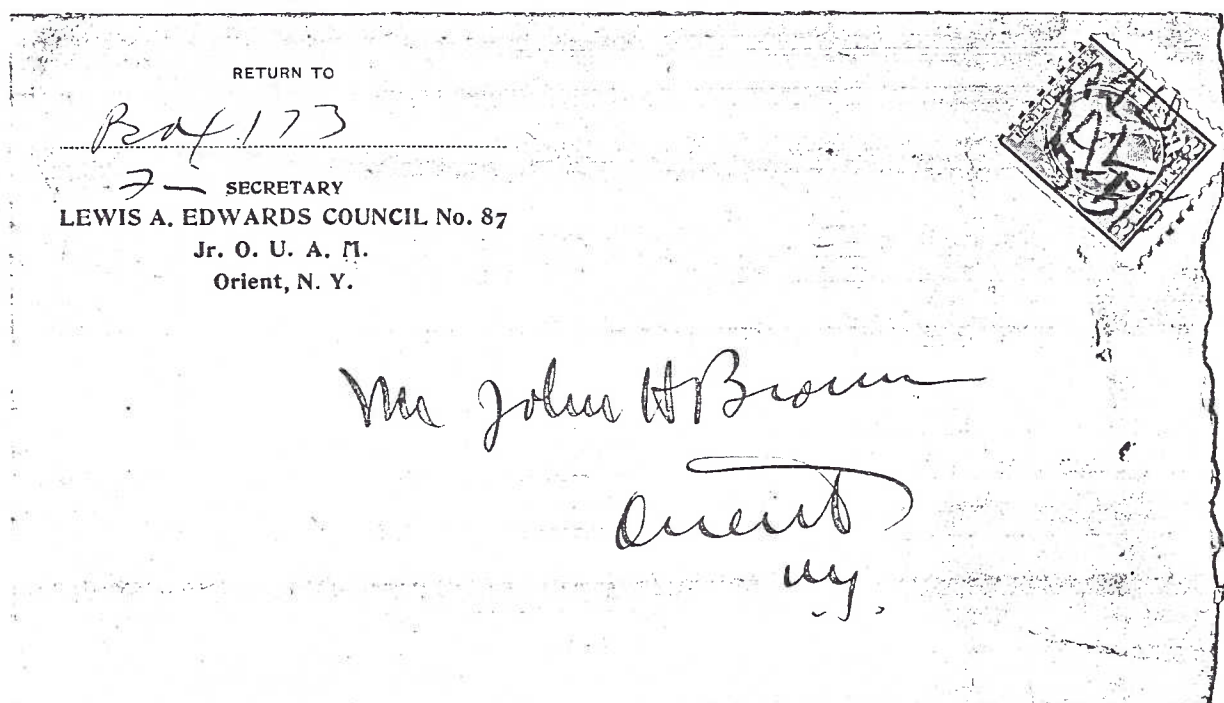 RETURN TO
Box 173
F — SECRETARY
LEWIS A. EDWARDS COUNCIL No. 87
Jr. O. U. A. M.
Orient, N. Y.
Mr John H Brown
Orient
Ny.